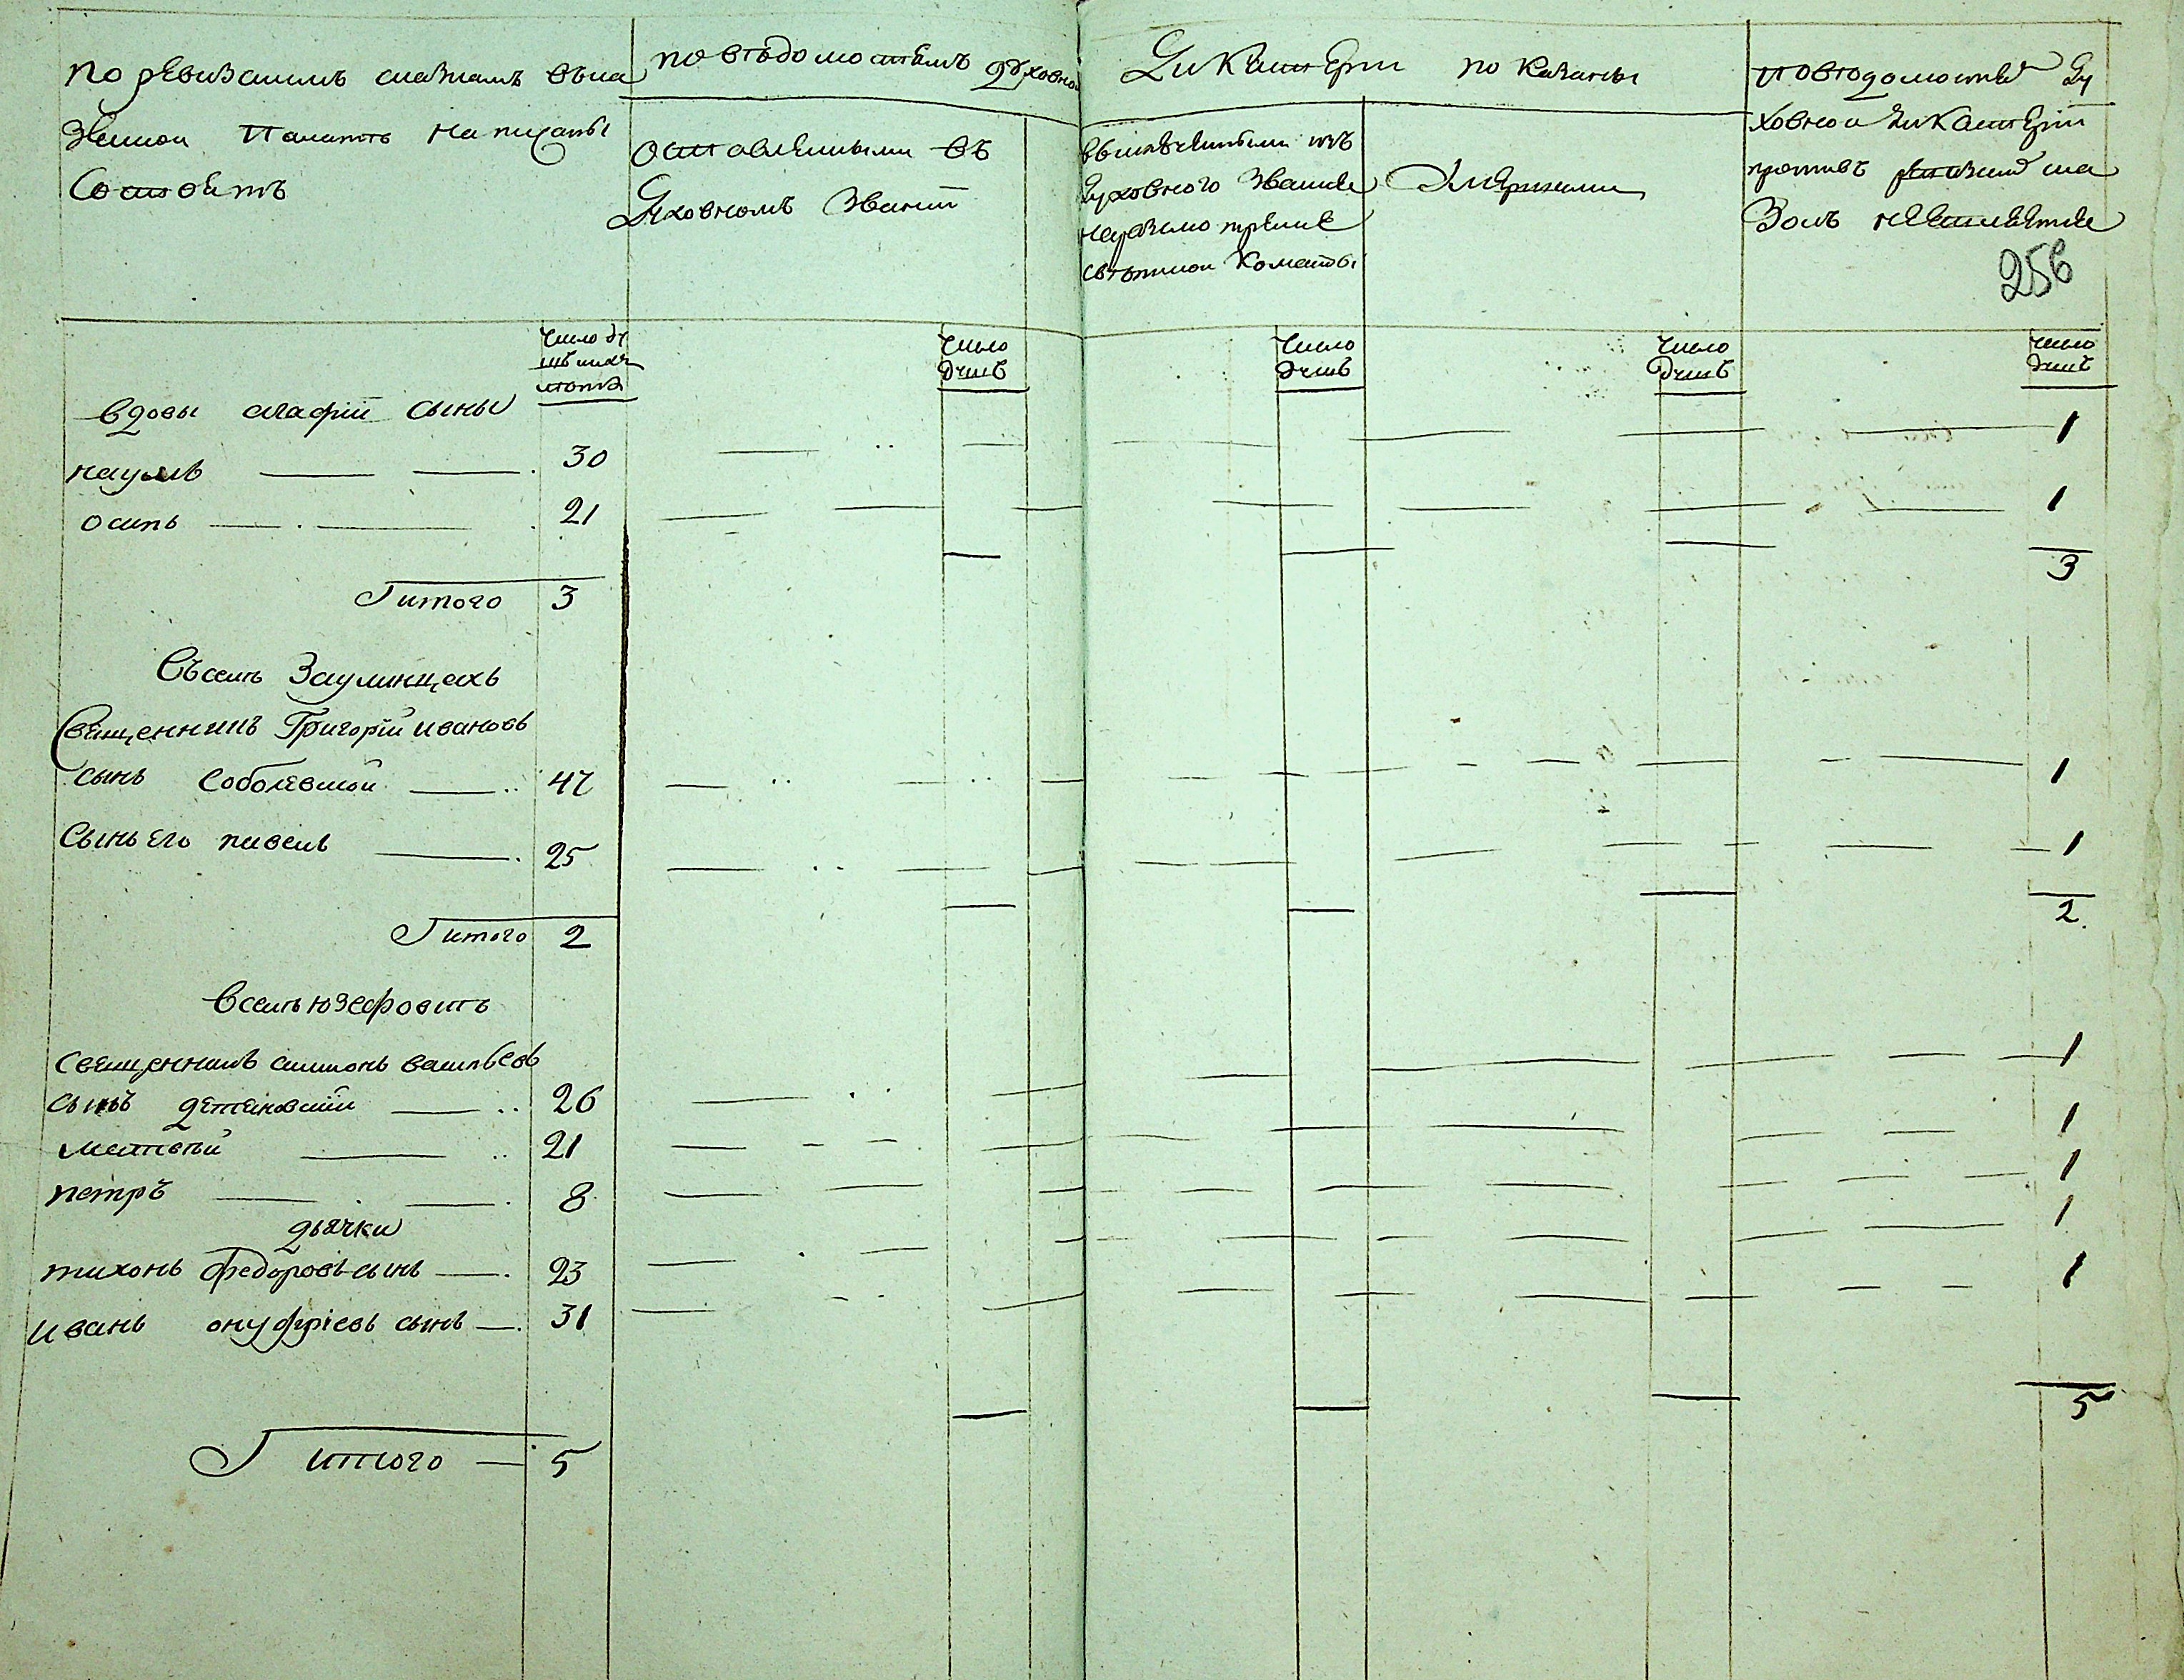 По ревизскимъ сказкамъ въка
зенной Палатѣ написаны
Состоитъ
по вѣдомостямъ духовной
Дикастерии показаны
оставленными въ
Духовномъ Званіи
выключенными изъ
Духовного Звания
свѣтской Команды
Умершими
по вѣдомостямъ Ду
ховной дикастеріи
противъ ревизскихъ ска
зокъ неявляется
256
Число ду
шъ
Число
душъ
Число
душъ
Число
душъ
Число
душъ
вдовы агафіи сыны
наумъ 30 1
осипъ 21 1
Итого 3 3
Въселѣ Заулинцахъ
Священникъ Григорій ивановъ
сынъ Соболевской 47 1
Сынъ его павелъ 25 1
Итого 2 2
Вселѣ юзефовитъ
священникъ симионъ васильевъ
сынъ 26 1
матвѣй 21 1
петръ 8 1
дьячки
тихонъ федоровъ сынъ 23 1
иванъ онуфріевъ сынъ 31 1
Итого 5 5